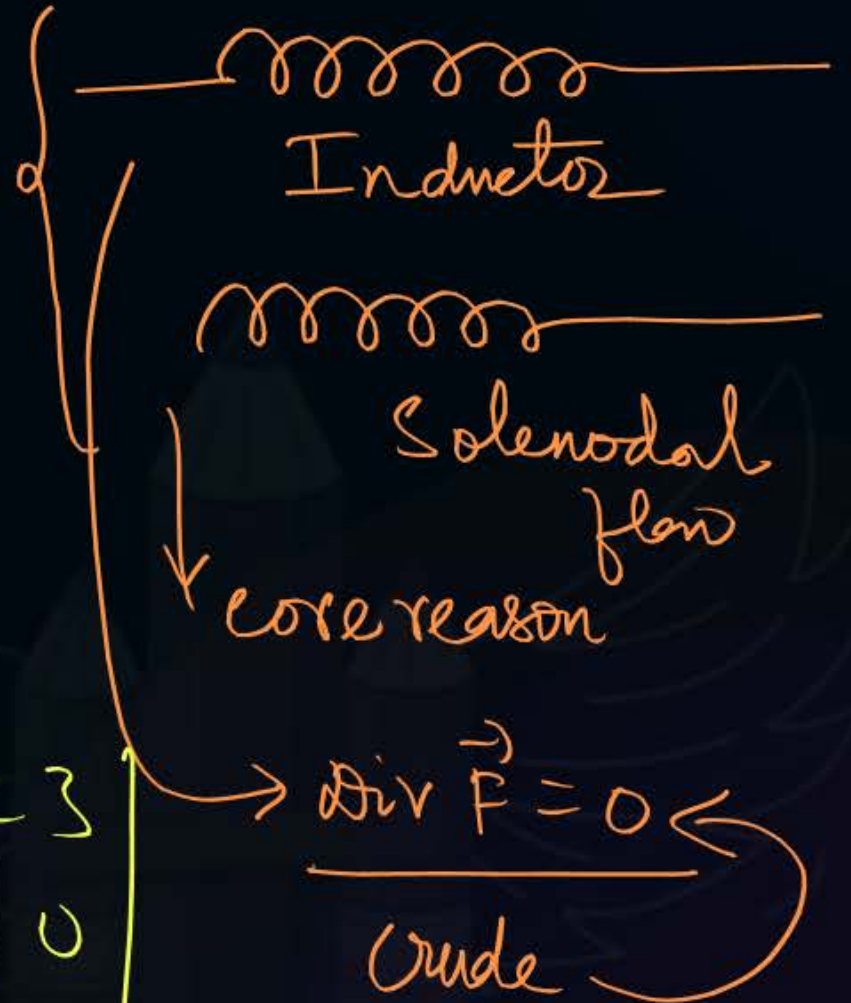 Inductor
Solenodal
flow
core reason
- 3
Div F⃗ = 0
0
Crude